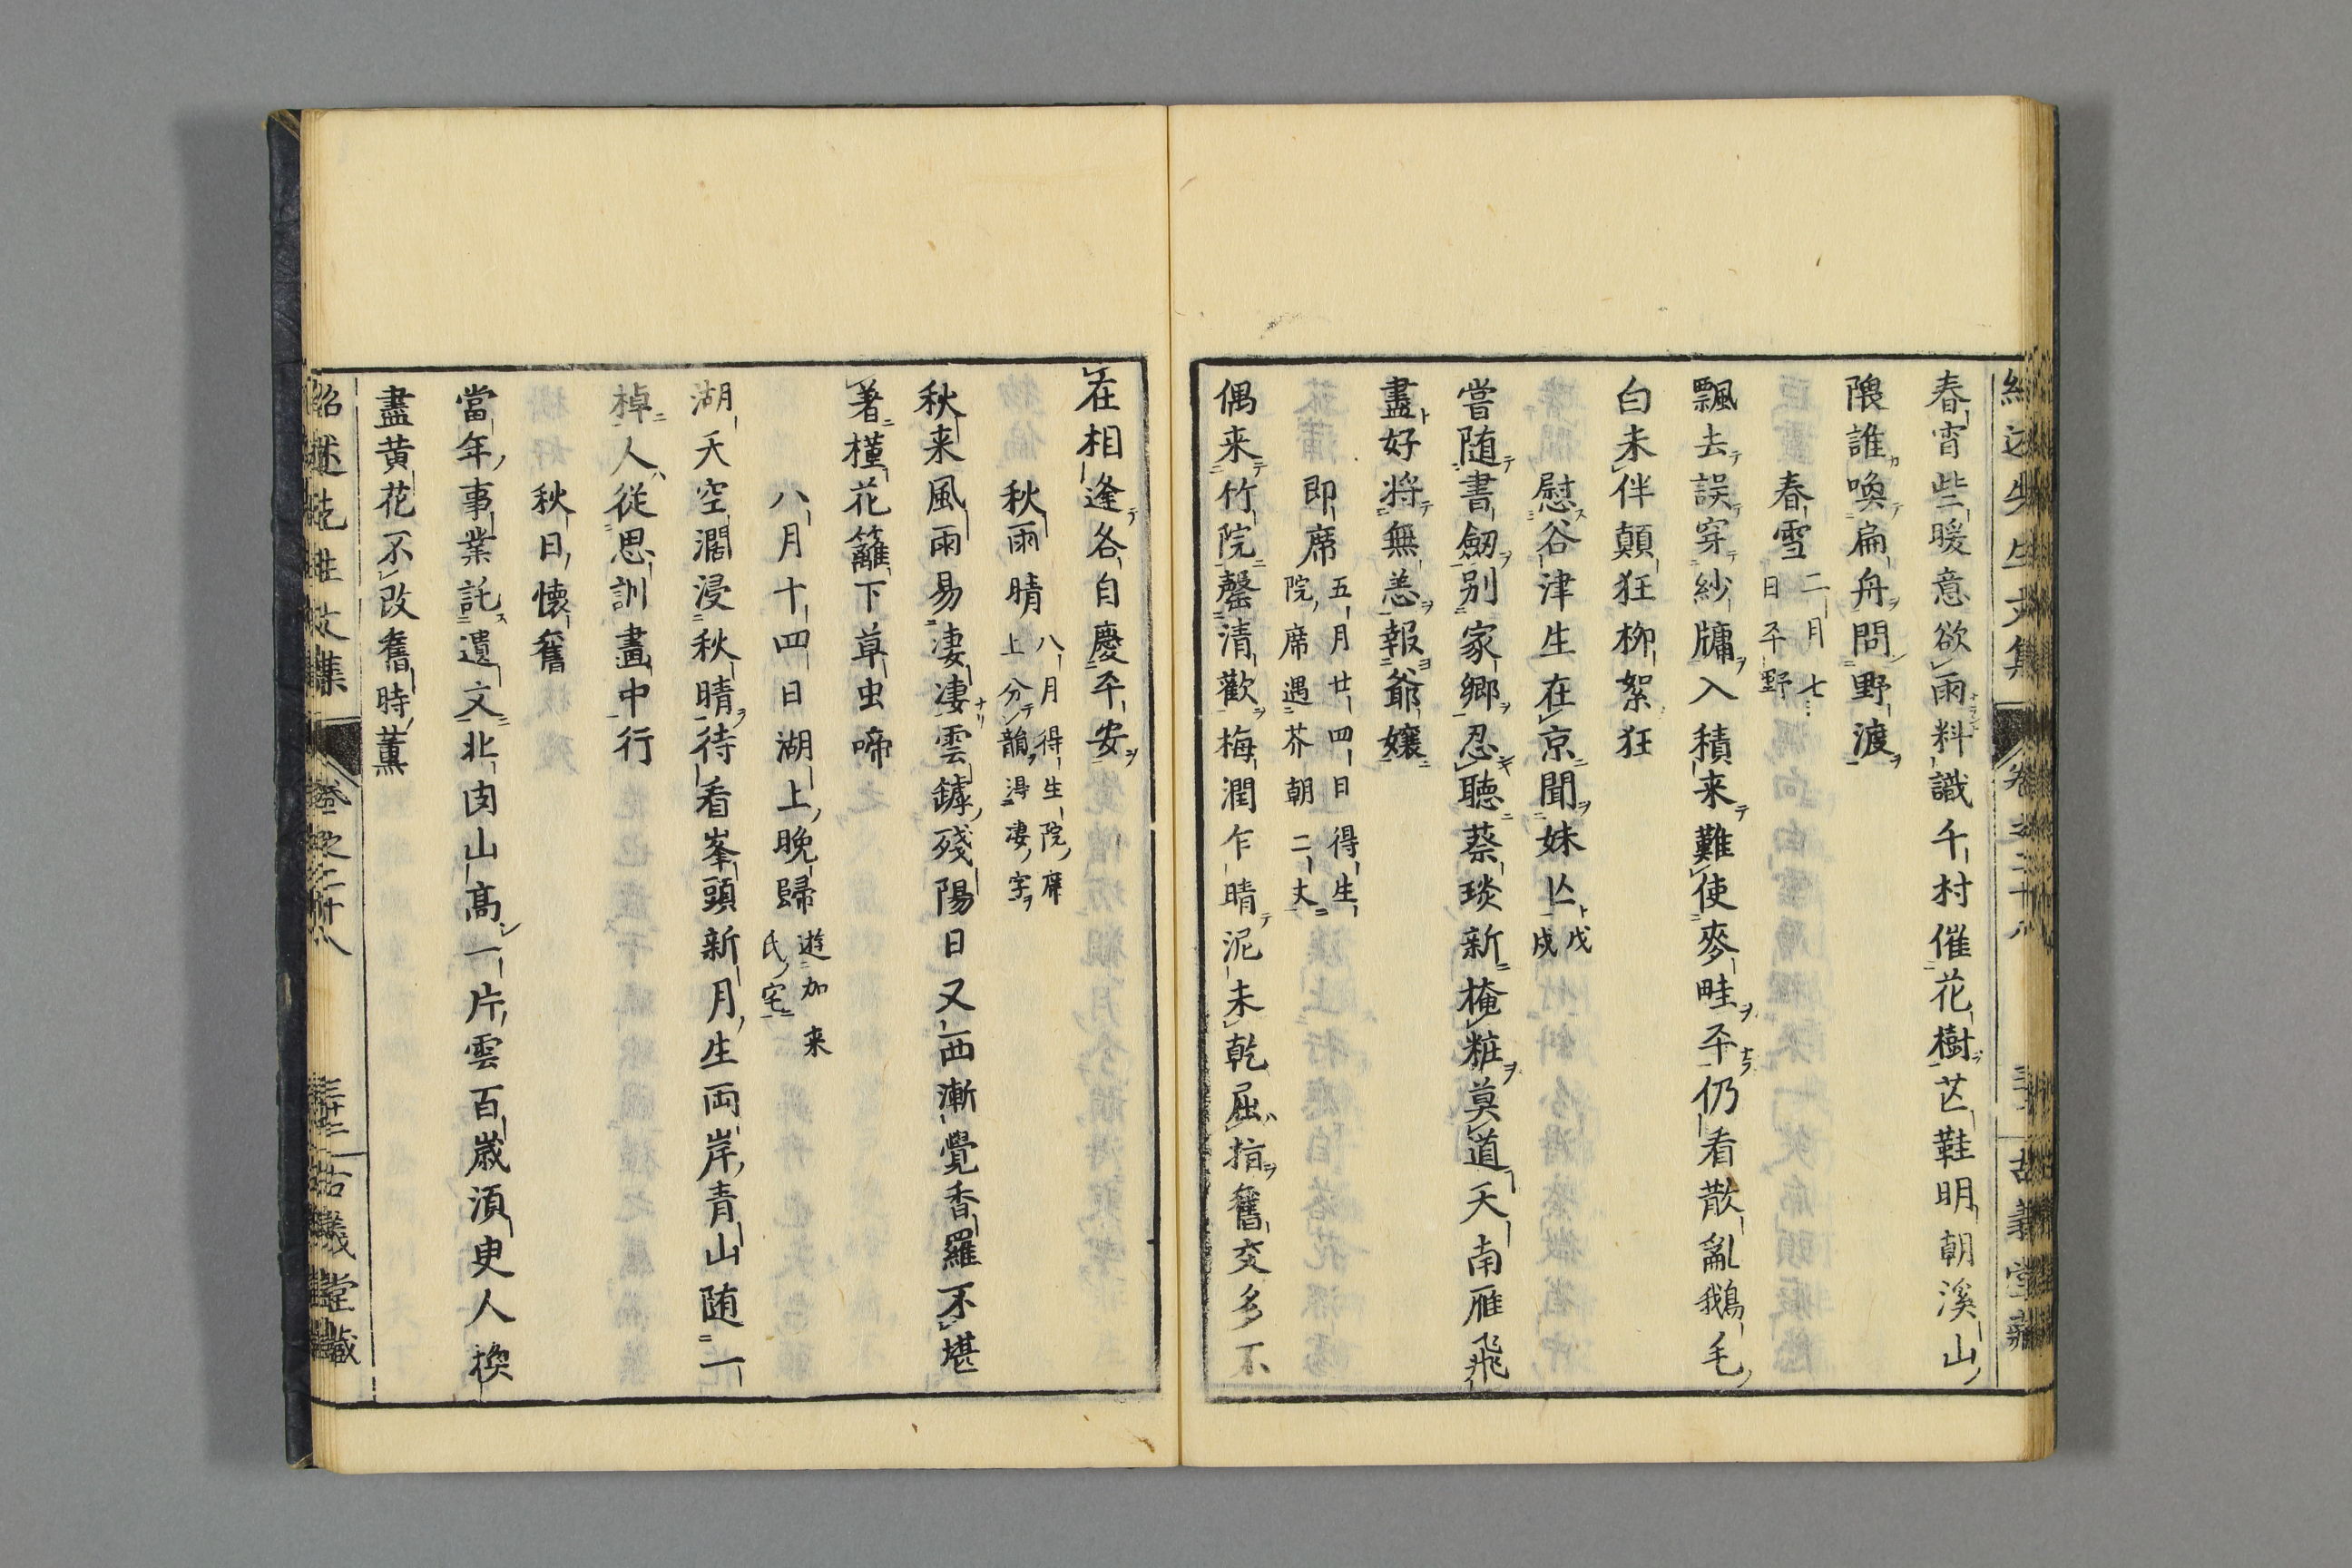 春宵些暖意欲雨料識千村催花樹芒鞋明朝溪山
隈誰喚扁舟問野渡
春雪 二月七日平野
飄去誤穿紗牖入積来難使麥畦平仍看散亂鵝毛
白未伴顛狂柳絮狂
慰谷津生在京聞妹亡 戊戌
嘗随書劔別家郷忍聴蔡琰新掩粧莫道天南雁飛
盡好将無恙報爺嬢
即席 五月廿四日得生院席遇芥朝二丈
偶来竹院罄清歡梅潤乍晴泥未乾屈指舊交多不
在相逢各自慶平安
秋雨晴 八月得生院席上分韻得凄字
秋来風雨易凄凄雲鏬殘陽日又西漸覺香羅不堪
著槿花籬下草虫啼
八月十四日湖上晩歸 遊加来氏宅
湖天空濶浸秋晴待看峯頭新月生両岸青山随一
棹人従思訓畫中行
秋日懐舊
當年事業託遺文北山高一片雲百歳須臾人換
盡黄花不改舊時薫
紹述先生文集 卷之二十八 古義堂藏
紹述先生文集 卷之二十八 三十二 古義堂藏